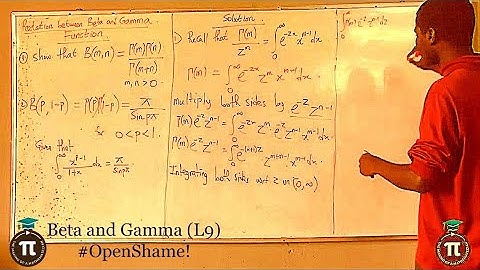 Relation between Beta and Gamma
Function.
① Show that B(m,n) = Γ(m)Γ(n) / Γ(m+n)
m, n > 0.
② B(p, 1-p) = Γ(p)Γ(1-p) = π / Sin pπ
for 0 < p < 1.
Given that
∫₀^∞ x^(p-1) / (1+x) dx = π / sin pπ
Solution.
① Recall that Γ(m) / z^m = ∫₀^∞ e^(-zx) x^(m-1) dx
Γ(m) = ∫₀^∞ e^(-zx) z^m x^(m-1) dx
multiply both sides by e^(-z) z^(n-1)
Γ(m) e^(-z) z^(n-1) = ∫₀^∞ e^(-zx) z^m e^(-z) z^(n-1) x^(m-1) dx.
Γ(m) e^(-z) z^(n-1) = ∫₀^∞ e^(-(x+1)z) z^(m+n-1) x^(m-1) dx.
Integrating both sides wrt z on (0, ∞)
∫₀^∞ Γ(m) e^(-z) z^(n-1) dz
Beta and Gamma (L9)
#OpenShame!
π
π